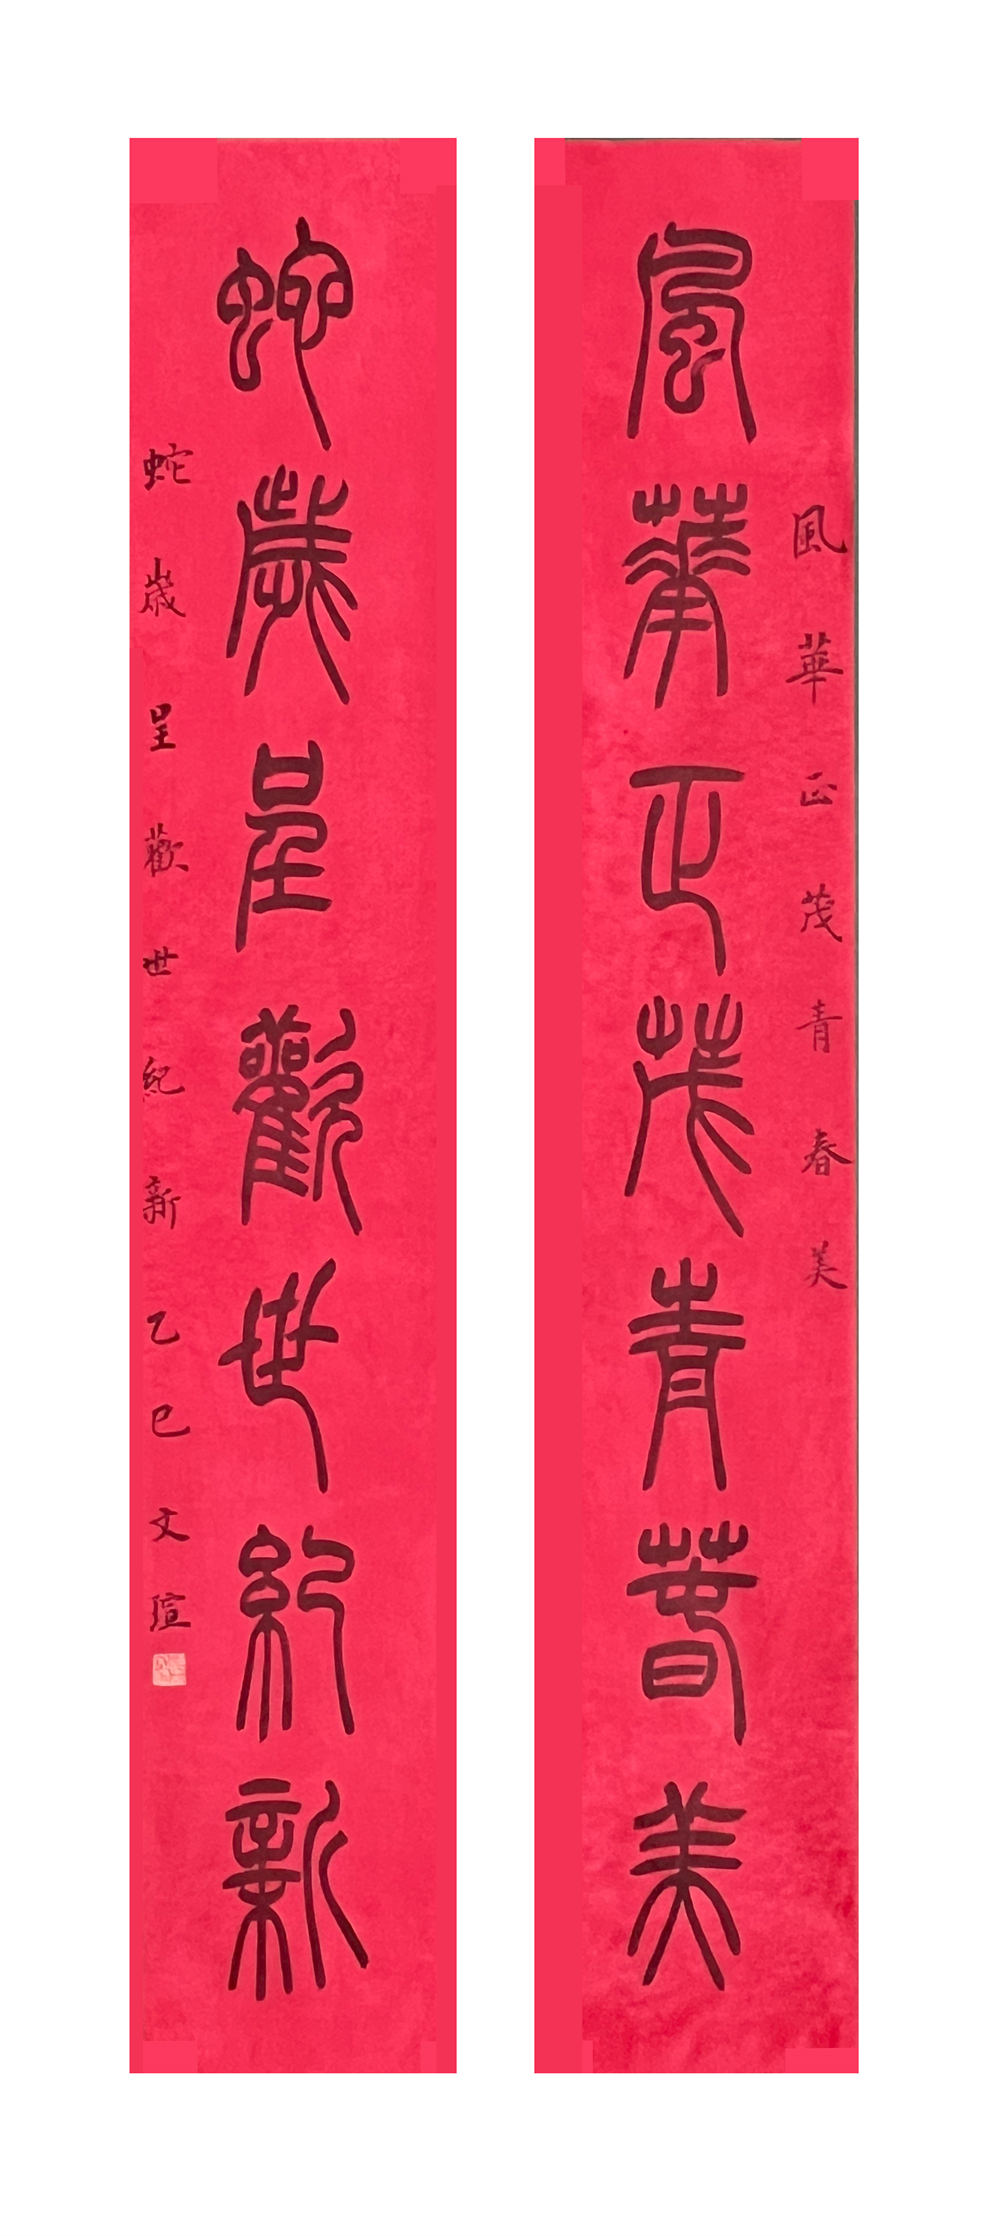 風華正茂青春美
風華正茂青春美
蛇歲呈歡世紀新
蛇歲呈歡世紀新乙巳文瑄